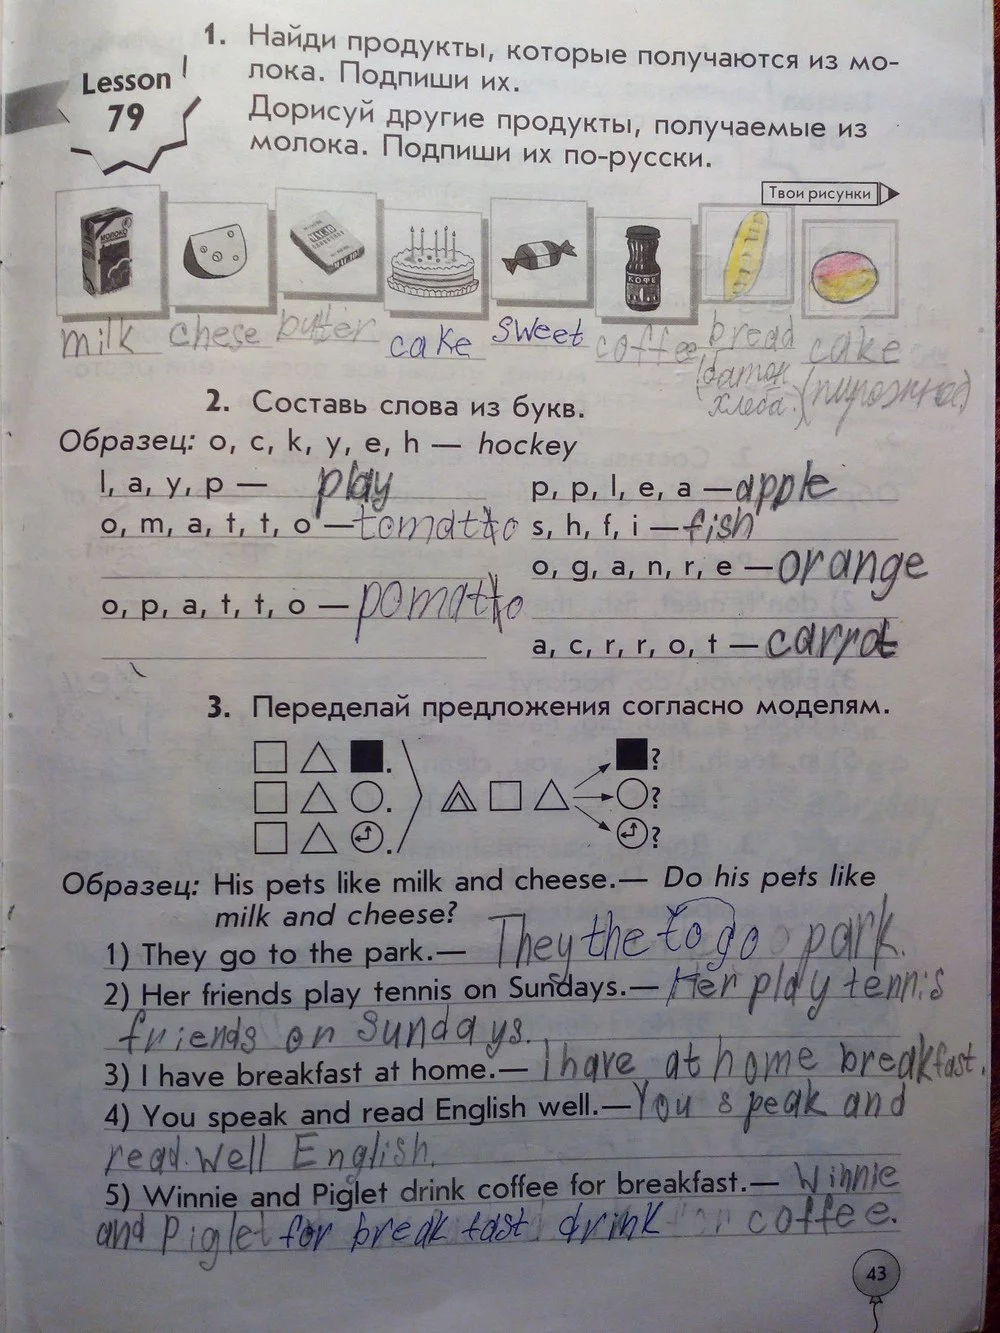 1. Найди продукты, которые получаются из мо-
лока. Подпиши их.
Дорисуй другие продукты, получаемые из
молока. Подпиши их по-русски.
Lesson
79
Твои рисунки
МОЛОКО
МАСЛО
МАСЛО
КОФЕ
milk chese butter cake sweet coffee bread cake
(батон хлеба.) (пирожное)
2. Составь слова из букв.
Образец: o, c, k, y, e, h — hockey
l, a, y, p — play
p, p, l, e, a — apple
o, m, a, t, t, o — tomatto
s, h, f, i — fish
o, g, a, n, r, e — orange
o, p, a, t, t, o — pomatto
a, c, r, r, o, t — carrot
3. Переделай предложения согласно моделям.
. ?
. ?
. ?
Образец: His pets like milk and cheese.— Do his pets like
milk and cheese?
1) They go to the park.— They the to go park.
2) Her friends play tennis on Sundays.— Her play tennis
friends on Sundays.
3) I have breakfast at home.— I have at home breakfast.
4) You speak and read English well.— You speak and
read well English.
5) Winnie and Piglet drink coffee for breakfast.— Winnie
and Piglet for break fast drink coffee.
43